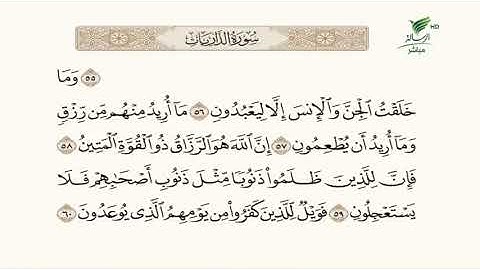 الرسالة HD
مباشر
سُورَةُ الذَّارِيَاتِ
٥٥ وَمَا
خَلَقْتُ الْجِنَّ وَالْإِنسَ إِلَّا لِيَعْبُدُونِ ٥٦ مَا أُرِيدُ مِنْهُم مِّن رِّزْقٍ
وَمَا أُرِيدُ أَن يُطْعِمُونِ ٥٧ إِنَّ اللَّهَ هُوَ الرَّزَّاقُ ذُو الْقُوَّةِ الْمَتِينُ ٥٨
فَإِنَّ لِلَّذِينَ ظَلَمُوا ذَنُوبًا مِّثْلَ ذَنُوبِ أَصْحَابِهِمْ فَلَا
يَسْتَعْجِلُونِ ٥٩ فَوَيْلٌ لِّلَّذِينَ كَفَرُوا مِن يَوْمِهِمُ الَّذِي يُوعَدُونَ ٦٠